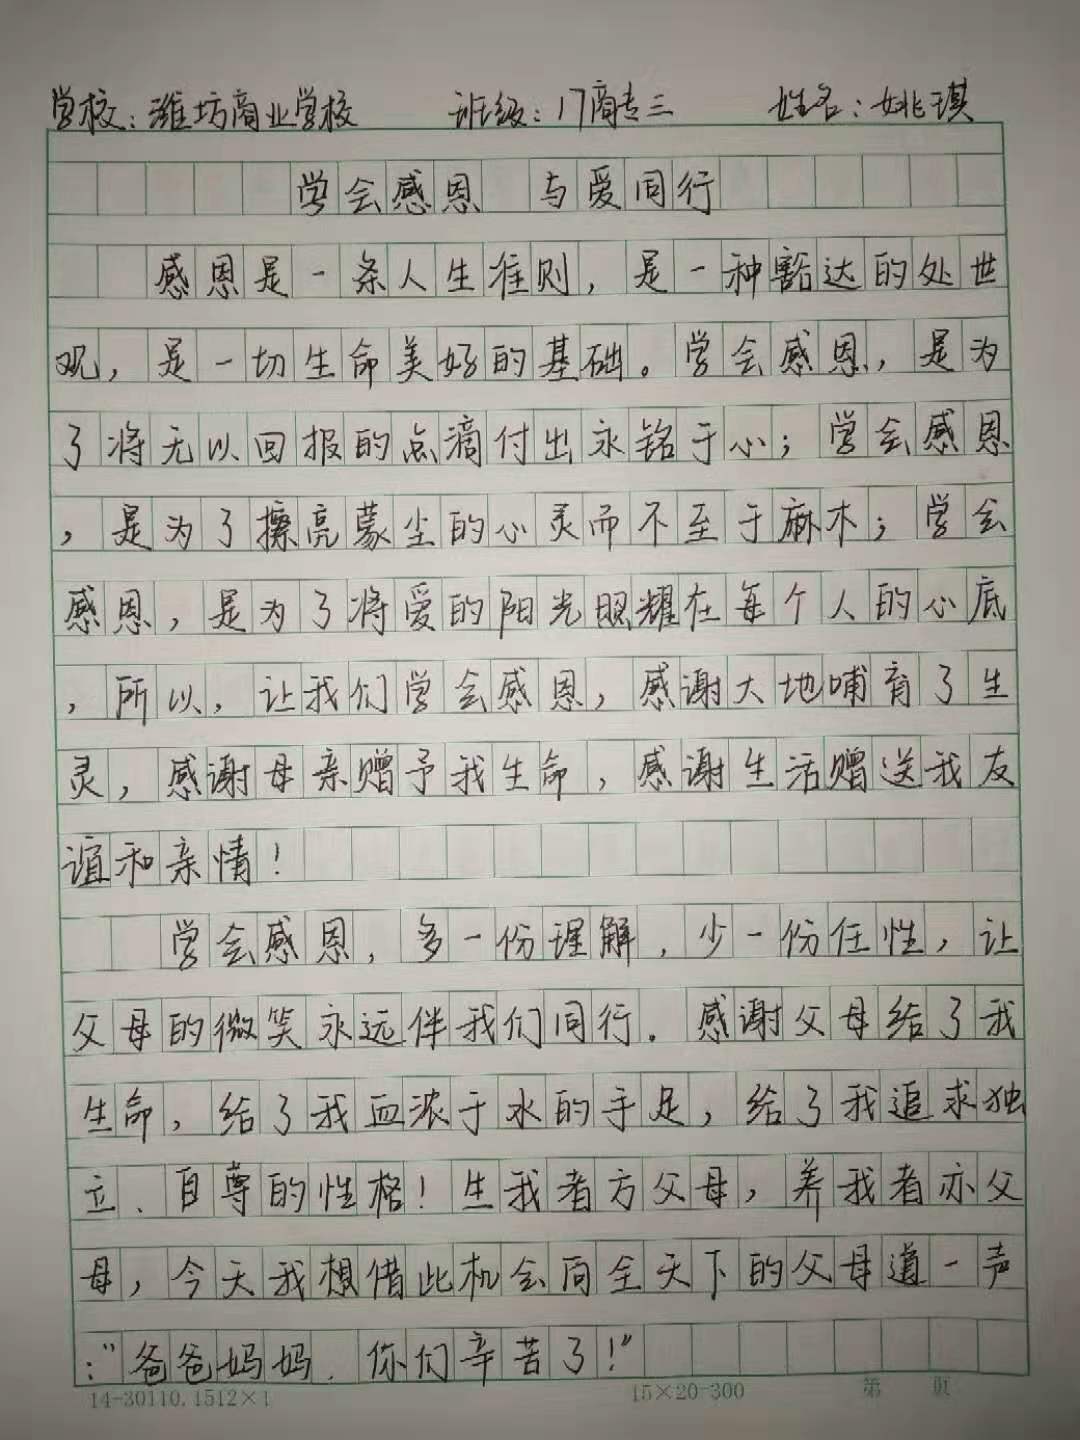 学校：潍坊商业学校 班级：17商专三 姓名：姚琪
学会感恩 与爱同行
感恩是一条人生准则，是一种豁达的处世
观，是一切生命美好的基础。学会感恩，是为
了将无以回报的点滴付出永铭于心；学会感恩
，是为了擦亮蒙尘的心灵而不至于麻木；学会
感恩，是为了将爱的阳光照耀在每个人的心底
，所以，让我们学会感恩，感谢大地哺育了生
灵，感谢母亲赠予我生命，感谢生活赠送我友
谊和亲情！
学会感恩，多一份理解，少一份任性，让
父母的微笑永远伴我们同行。感谢父母给了我
生命，给了我血浓于水的手足，给了我追求独
立、自尊的性格！生我者方父母，养我者亦父
母，今天我想借此机会向全天下的父母道一声
：“爸爸妈妈．你们辛苦了！”
14-30110.1512×1 15×20-300 第 页